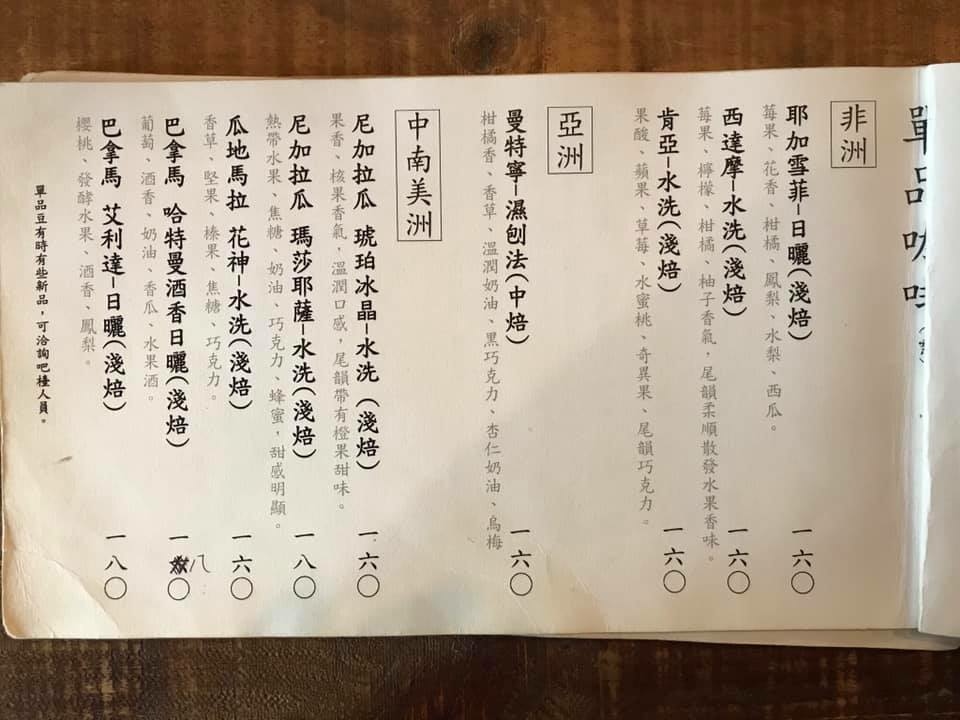 單品咖啡
非洲
耶加雪菲-日曬(淺焙) 一六〇
莓果、花香、柑橘、鳳梨、水梨、西瓜。
西達摩-水洗(淺焙) 一六〇
莓果、檸檬、柑橘、柚子香氣,尾韻柔順散發水果香味。
肯亞-水洗(淺焙) 一六〇
果酸、蘋果、草莓、水蜜桃、奇異果、尾韻巧克力。
亞洲
曼特寧-濕刨法(中焙) 一六〇
柑橘香、香草、溫潤奶油、黑巧克力、杏仁奶油、烏梅
中南美洲
尼加拉瓜 琥珀冰晶-水洗 (淺焙) 一六〇
果香、核果香氣,溫潤口感,尾韻帶有橙果甜味。
尼加拉瓜 瑪莎耶薩-水洗(淺焙) 一八〇
熱帶水果、焦糖、奶油、巧克力、蜂蜜,甜感明顯。
瓜地馬拉 花神-水洗(淺焙) 一六〇
香草、堅果、榛果、焦糖、巧克力。
巴拿馬 哈特曼酒香日曬(淺焙) 一八〇
葡萄、酒香、奶油、香瓜、水果酒。
巴拿馬 艾利達-日曬(淺焙) 一八〇
櫻桃、發酵水果、酒香、鳳梨。
單品豆有時有些新品,可洽詢吧檯人員。